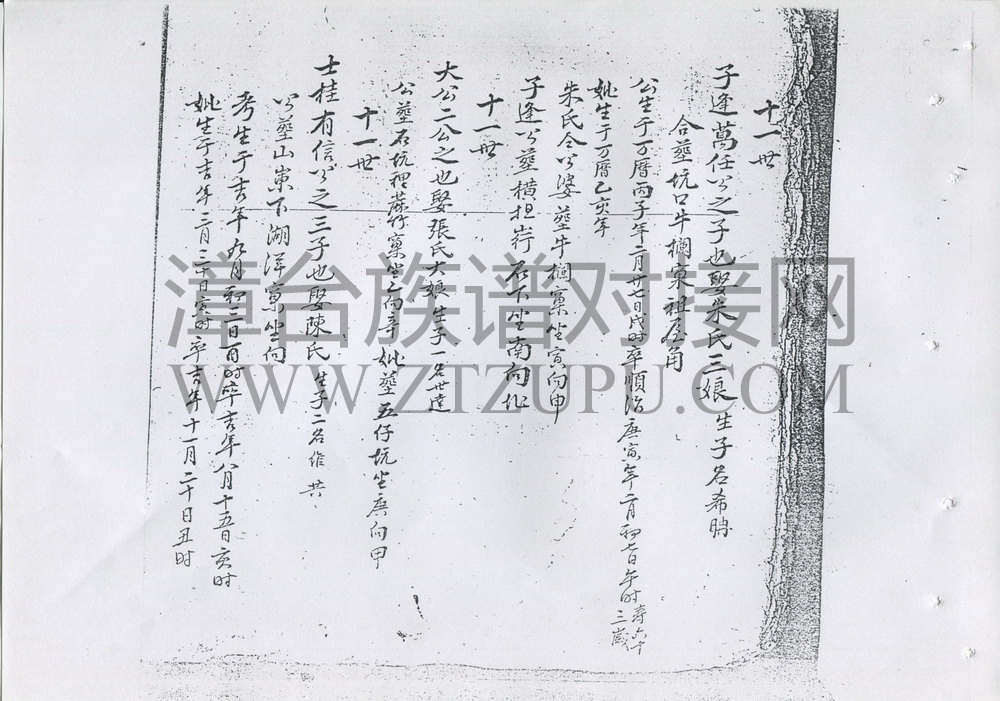 十一世
子逢萬任公之子也娶朱氏三娘生子名希腾
合塟坑口牛欄窠祖屋角
公生于万曆丙子年二月廿七日戌时卒順治庚寅年二月初七日午时寿六十
三歲
妣生于万曆乙亥年
朱氏仝公婆塟牛欄窠坐寅向申
子逢公塟横担崠石下坐南向北
十一世
大公二公之也娶張氏大娘生子一名世達
公塟石坑裡蔴竹窠坐乙向辛 妣塟五仔坑坐庚向甲
十一世
士桂有信公之三子也娶陳氏 生子二名 共
公塟山崠下湖洋窠坐向
考生于吉年九月初二日酉时卒吉年八月十五日亥时
妣生于吉年三月二十日亥时卒吉年十一月二十日丑时
漳台族谱对接网
WWW.ZTZUPU.COM